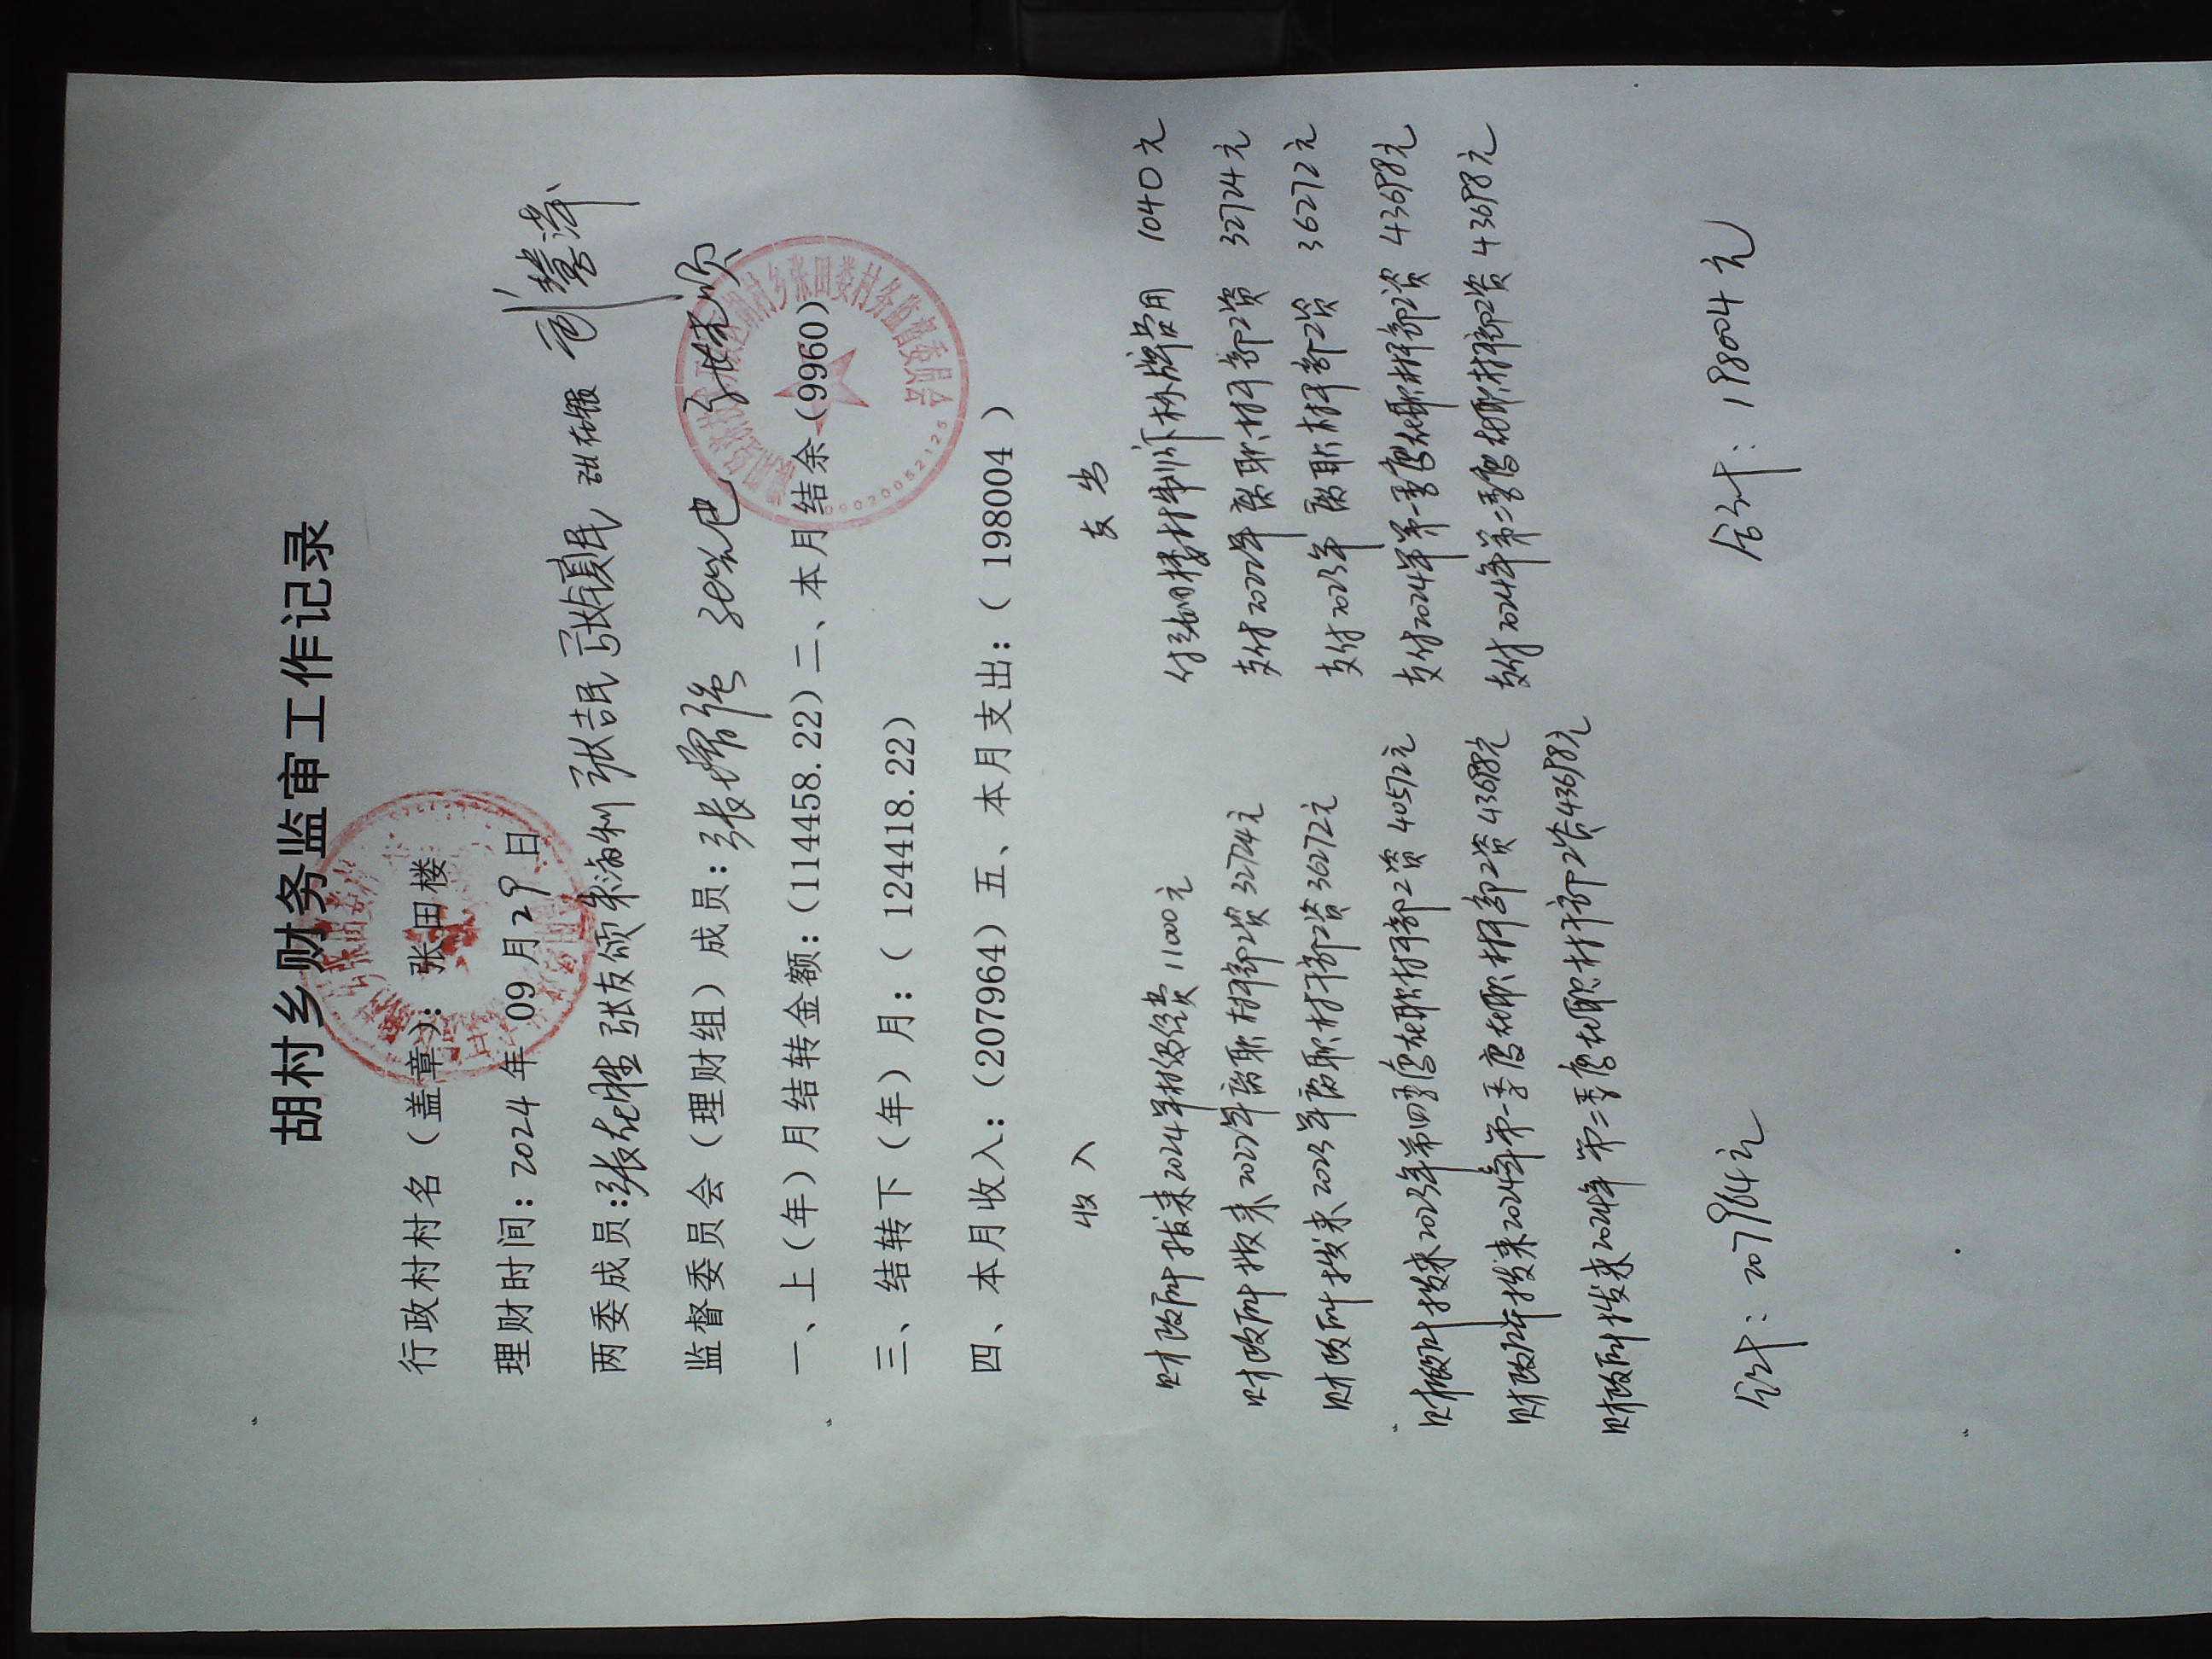 胡村乡财务监审工作记录
行政村村名（盖章）：张田楼
理财时间：2024年09月29日
两委成员：张在胜 张友领 张喆民 张镇民
监督委员会（理财组）成员：
一、上（年）月结转金额：（114458.22）二、本月结余（9960）
三、结转下（年）月：（124418.22）
四、本月收入：（207964）五、本月支出：（198004）
收入
财政所拨来2024年村级经费11000元
财政所拨来2022年离职村干部工资32724元
财政所拨来2023年离职村干部工资36272元
财政所拨来2023年第四季度在职村干部工资40572元
财政所拨来2024年第一季度在职村干部工资43698元
财政所拨来2024年第二季度在职村干部工资43698元
合计：207964元
支出
付张田楼村制作标牌费用 1040元
支付2022年离职村干部工资 32724元
支付2023年离职村干部工资 36272元
支付2024年第一季度在职村干部工资 43698元
支付2024年第二季度在职村干部工资 43698元
合计：198004元
胡村乡张田楼村务监督委员会